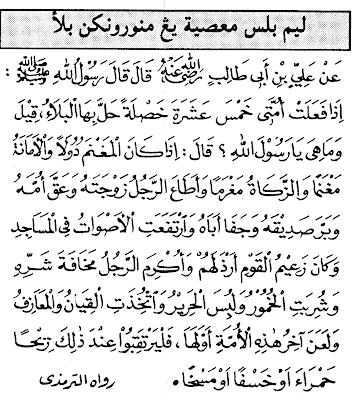 ليم بلس معصية يڠ منورونكن بلأ
عَنْ عَلِيِّ بْنِ أَبِي طَالِبٍ رضي الله عنه قَالَ قَالَ رَسُوْلُ اللهِ ﷺ :
إِذَا فَعَلَتْ أُمَّتِى خَمْسَ عَشَرَةَ خَصْلَةً حَلَّ بِهَا الْبَلَاءُ، قِيْلَ
وَمَا هِيَ يَا رَسُوْلَ اللهِ ؟ قَالَ : إِذَا كَانَ الْمَغْنَمُ دُوَلًا وَالْأَمَانَةُ
مَغْنَمًا وَالزَّكَاةُ مَغْرَمًا وَأَطَاعَ الرَّجُلُ زَوْجَتَهُ وَعَقَّ أُمَّهُ
وَبَرَّ صَدِيْقَهُ وَجَفَا أَبَاهُ وَارْتَفَعَتِ الْأَصْوَاتُ فِي الْمَسَاجِدِ
وَكَانَ زَعِيْمُ الْقَوْمِ أَرْذَلَهُمْ وَأُكْرِمَ الرَّجُلُ مَخَافَةَ شَرِّهِ
وَشُرِبَتِ الْخُمُوْرُ وَلُبِسَ الْحَرِيْرُ وَاتُّخِذَتِ الْقِيَانُ وَالْمَعَازِفُ
وَلَعَنَ آخِرُ هٰذِهِ الْأُمَّةِ أَوَّلَهَا ، فَلْيَرْتَقِبُوْا عِنْدَ ذَالِكَ رِيْحًا
حَمْرَاءَ اَوْ خَسْفًا اَوْ مَسْخًا ه رواه الترمذى